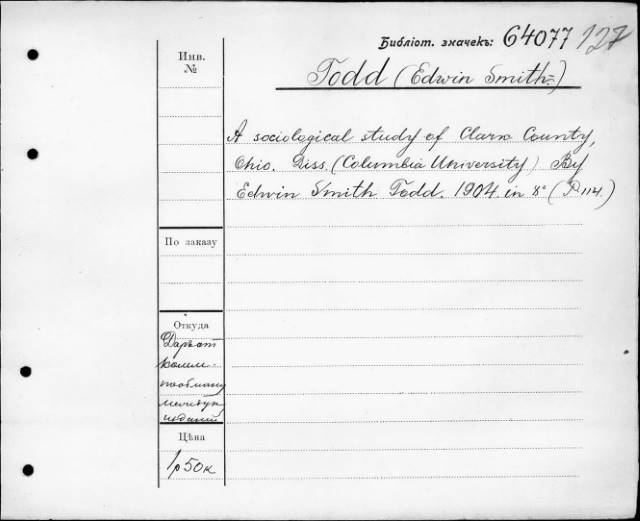 Библіот. значекъ: 64077 127
Инв.
№
Todd (Edwin Smith)
A sociological study of Clark County,
Ohio. Diss. (Columbia University) By
Edwin Smith Todd. 1904. in 8° (P. 114.)
По заказу
Откуда
Даръ от
комм.
по обмену
междун
изданій
Цѣна
1р 50к